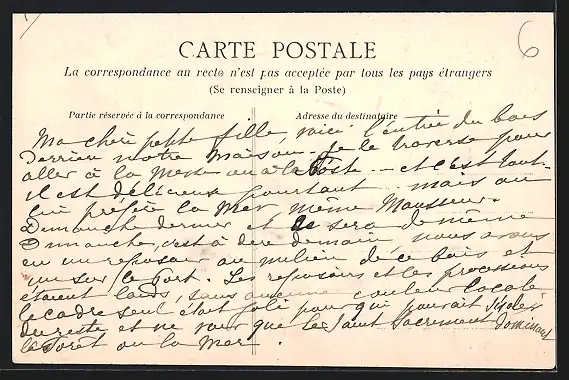 6
CARTE POSTALE
La correspondance au recto n'est pas acceptée par tous les pays étrangers
(Se renseigner à la Poste)
Partie réservée à la correspondance
Adresse du destinataire
Ma chère petite fille, voici l'entrée du bois
derrière notre maison. Je le traverse pour
aller à la messe ou à la Poste - et c'est tout.
Il est délicieux pourtant mais on
lui préfère la mer même Monsieur.
Dimanche dernier et ce sera de même
Dimanche, c'est à dire demain, nous avons
eu un reposoir au milieu de ce bois et
un sur le Port. Les reposoirs et les processions
étaient laids, sans aucune couleur locale
le cadre seul était joli pour qui pouvait
du reste et ne voir que le Saint Sacrement dominant
la Forêt ou la Mer.